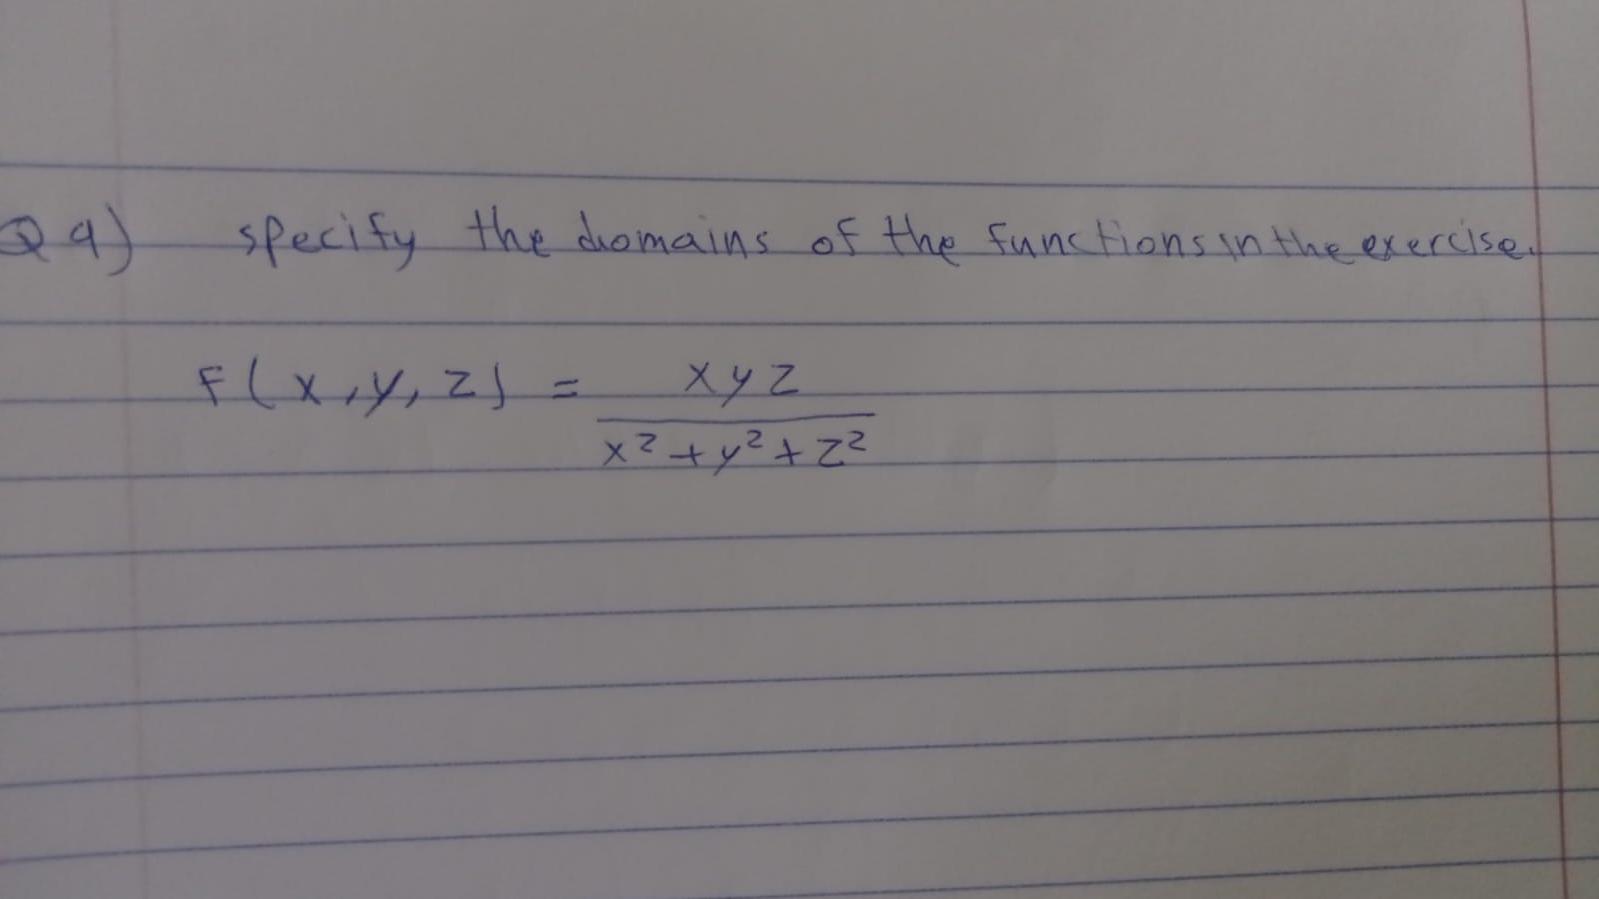 Q9) specify the domains of the functions in the exercise.
F(x,y,z) = xyz
x²+y²+z²